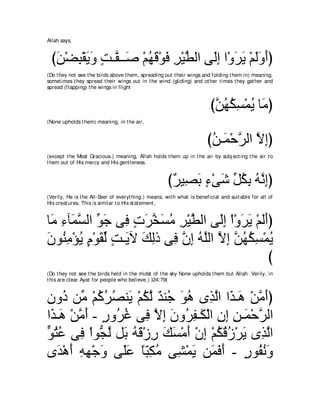 Allah says,
(أَوَلَمْ يَرَوْا إِلَى الطَّيْرِ فَوْقَهُمْ صَــفَّـتٍ وَيَقْبِضْنَ)
(Do they not see the birds above them, spreading out their wings and folding them in) meaning,
sometimes they spread their wings out in the wind (gliding) and other times they gather and
spread (flapping) the wings in flight
(مَا يُمْسِكُهُنَّ)
(None upholds them) meaning, in the air,
(إِلاَّ الرَّحْمَـنُ)
(except the Most Gracious.) meaning, Allah holds them up in the air by subjecting the air to
them out of His mercy and His gentleness.
(إِنَّهُ بِكُلِّ شَىْءٍ بَصِيرٌ)
(Verily, He is the All-Seer of everything.) means, with what is beneficial and suitable for all of
His creatures. This is similar to His statement,
(أَلَمْ يَرَوْاْ إِلَى الطَّيْرِ مُسَخَّرَتٍ فِى جَوِّ السَّمَآءِ مَا
يُمْسِكُهُنَّ إِلاَّ اللَّهُ إِنَّ فِى ذلِكَ لآيَـتٍ لِّقَوْمٍ يُؤْمِنُونَ
)
(Do they not see the birds held in the midst of the sky None upholds them but Allah. Verily, in
this are clear Ayat for people who believe.) )24:79(
(أَمَّنْ هَـذَا الَّذِى هُوَ جُندٌ لَّكُمْ يَنصُرُكُمْ مِّن دُونِ
الرَّحْمَـنِ إِنِ الْكَـفِرُونَ إِلاَّ فِى غُرُورٍ - أَمَّنْ هَـذَا
الَّذِى يَرْزُقُكُمْ إِنْ أَمْسَكَ رِزْقَهُ بَل لَّجُّواْ فِى عُتُوٍّ
وَنُفُورٍ - أَفَمَن يَمْشِى مُكِبّاً عَلَى وَجْهِهِ أَهْدَى